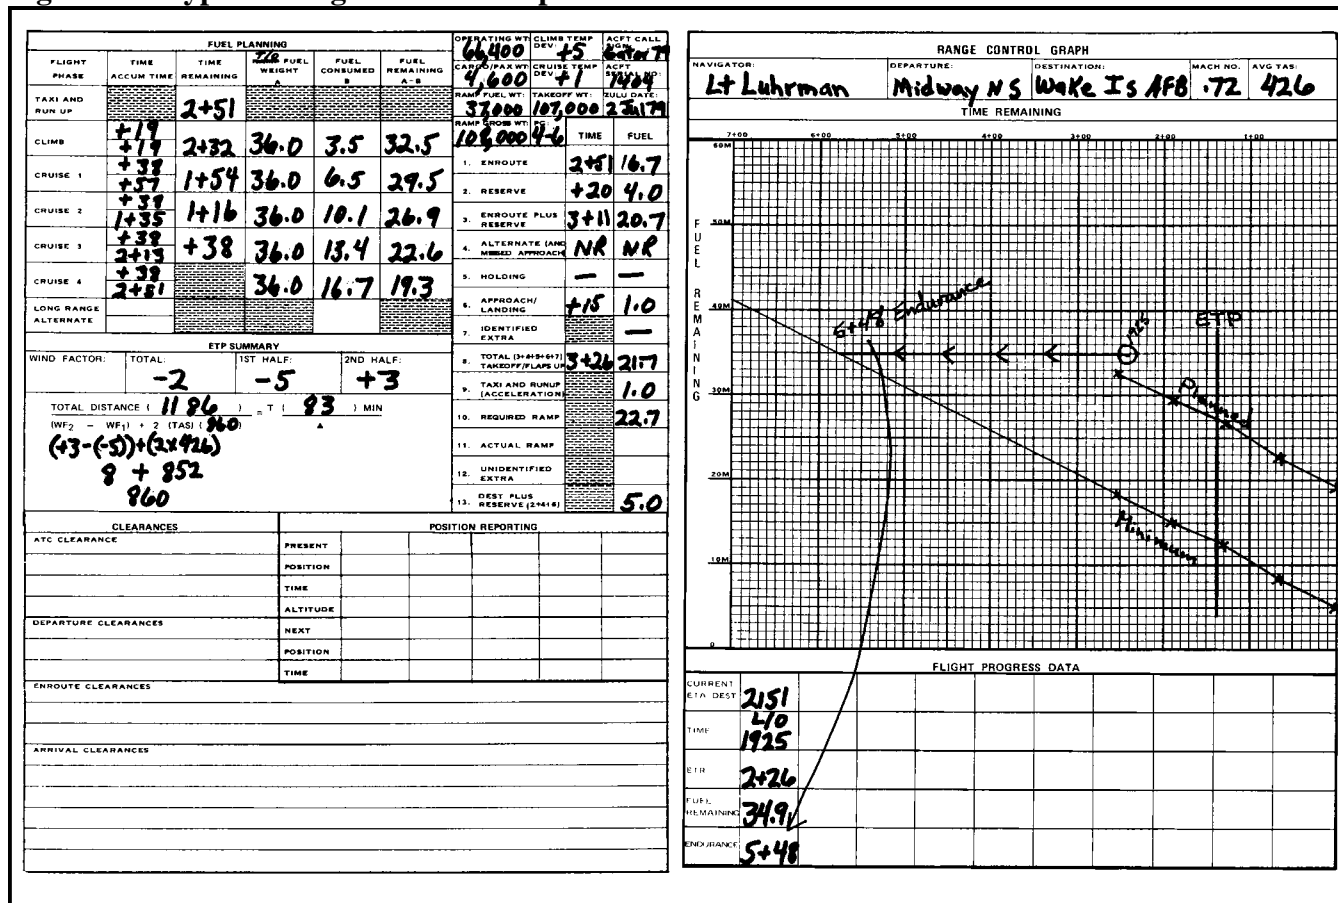 FUEL PLANNING
FLIGHT PHASE
TIME ACCUM TIME B
TIME REMAINING
T/O FUEL WEIGHT A
FUEL CONSUMED B
FUEL REMAINING A-B
TAXI AND RUN UP 2+51
CLIMB +19 +19 2+32 36.0 3.5 32.5
CRUISE 1 +38 +57 1+54 36.0 6.5 29.5
CRUISE 2 +38 1+35 1+16 36.0 10.1 26.9
CRUISE 3 +38 2+13 +38 36.0 13.4 22.6
CRUISE 4 +38 2+51 36.0 16.7 19.3
LONG RANGE ALTERNATE
ETP SUMMARY
WIND FACTOR: TOTAL: -2 1ST HALF: -5 2ND HALF: +3
TOTAL DISTANCE ( 1186 ) = T ( 83 ) MIN
(WF2 - WF1) + 2 (TAS) ( 860 )
(+3-(-5))+(2x426)
8 + 852
860
OPERATING WT: 66,400 CLIMB TEMP DEV: +5 ACFT CALL SIGN: Gator 79
CARGO/PAX WT: 4,600 CRUISE TEMP DEV: +1 ACFT SERIAL NO: 1404
RAMP FUEL WT: 37,000 TAKEOFF WT: 107,000 ZULU DATE: 2 Jul 79
RAMP GROSS WT: 108,000 PG: 4-6 TIME FUEL
1. ENROUTE 2+51 16.7
2. RESERVE +20 4.0
3. ENROUTE PLUS RESERVE 3+11 20.7
4. ALTERNATE (AND MISSED APPROACH) NR NR
5. HOLDING — —
6. APPROACH/ LANDING +15 1.0
7. IDENTIFIED EXTRA —
8. TOTAL (3+4+5+6+7) TAKEOFF/FLAPS UP 3+26 21.7
9. TAXI AND RUNUP (ACCELERATION) 1.0
10. REQUIRED RAMP 22.7
11. ACTUAL RAMP
12. UNIDENTIFIED EXTRA
13. DEST PLUS RESERVE (2+4+6) 5.0
CLEARANCES
ATC CLEARANCE
DEPARTURE CLEARANCES
ENROUTE CLEARANCES
ARRIVAL CLEARANCES
POSITION REPORTING
PRESENT
POSITION
TIME
ALTITUDE
NEXT
POSITION
TIME
RANGE CONTROL GRAPH
NAVIGATOR: Lt Luhrman DEPARTURE: Midway NS DESTINATION: Wake Is AFB MACH NO. .72 AVG TAS: 426
TIME REMAINING
7+00 6+00 5+00 4+00 3+00 2+00 1+00
FUEL REMAINING
60M
50M
40M
30M
20M
10M
0
5+48 Endurance
1925
ETP
Planned
Minimum
FLIGHT PROGRESS DATA
CURRENT ETA DEST 2151
TIME L/O 1925
ETR 2+26
FUEL REMAINING 34.9
ENDURANCE 5+48